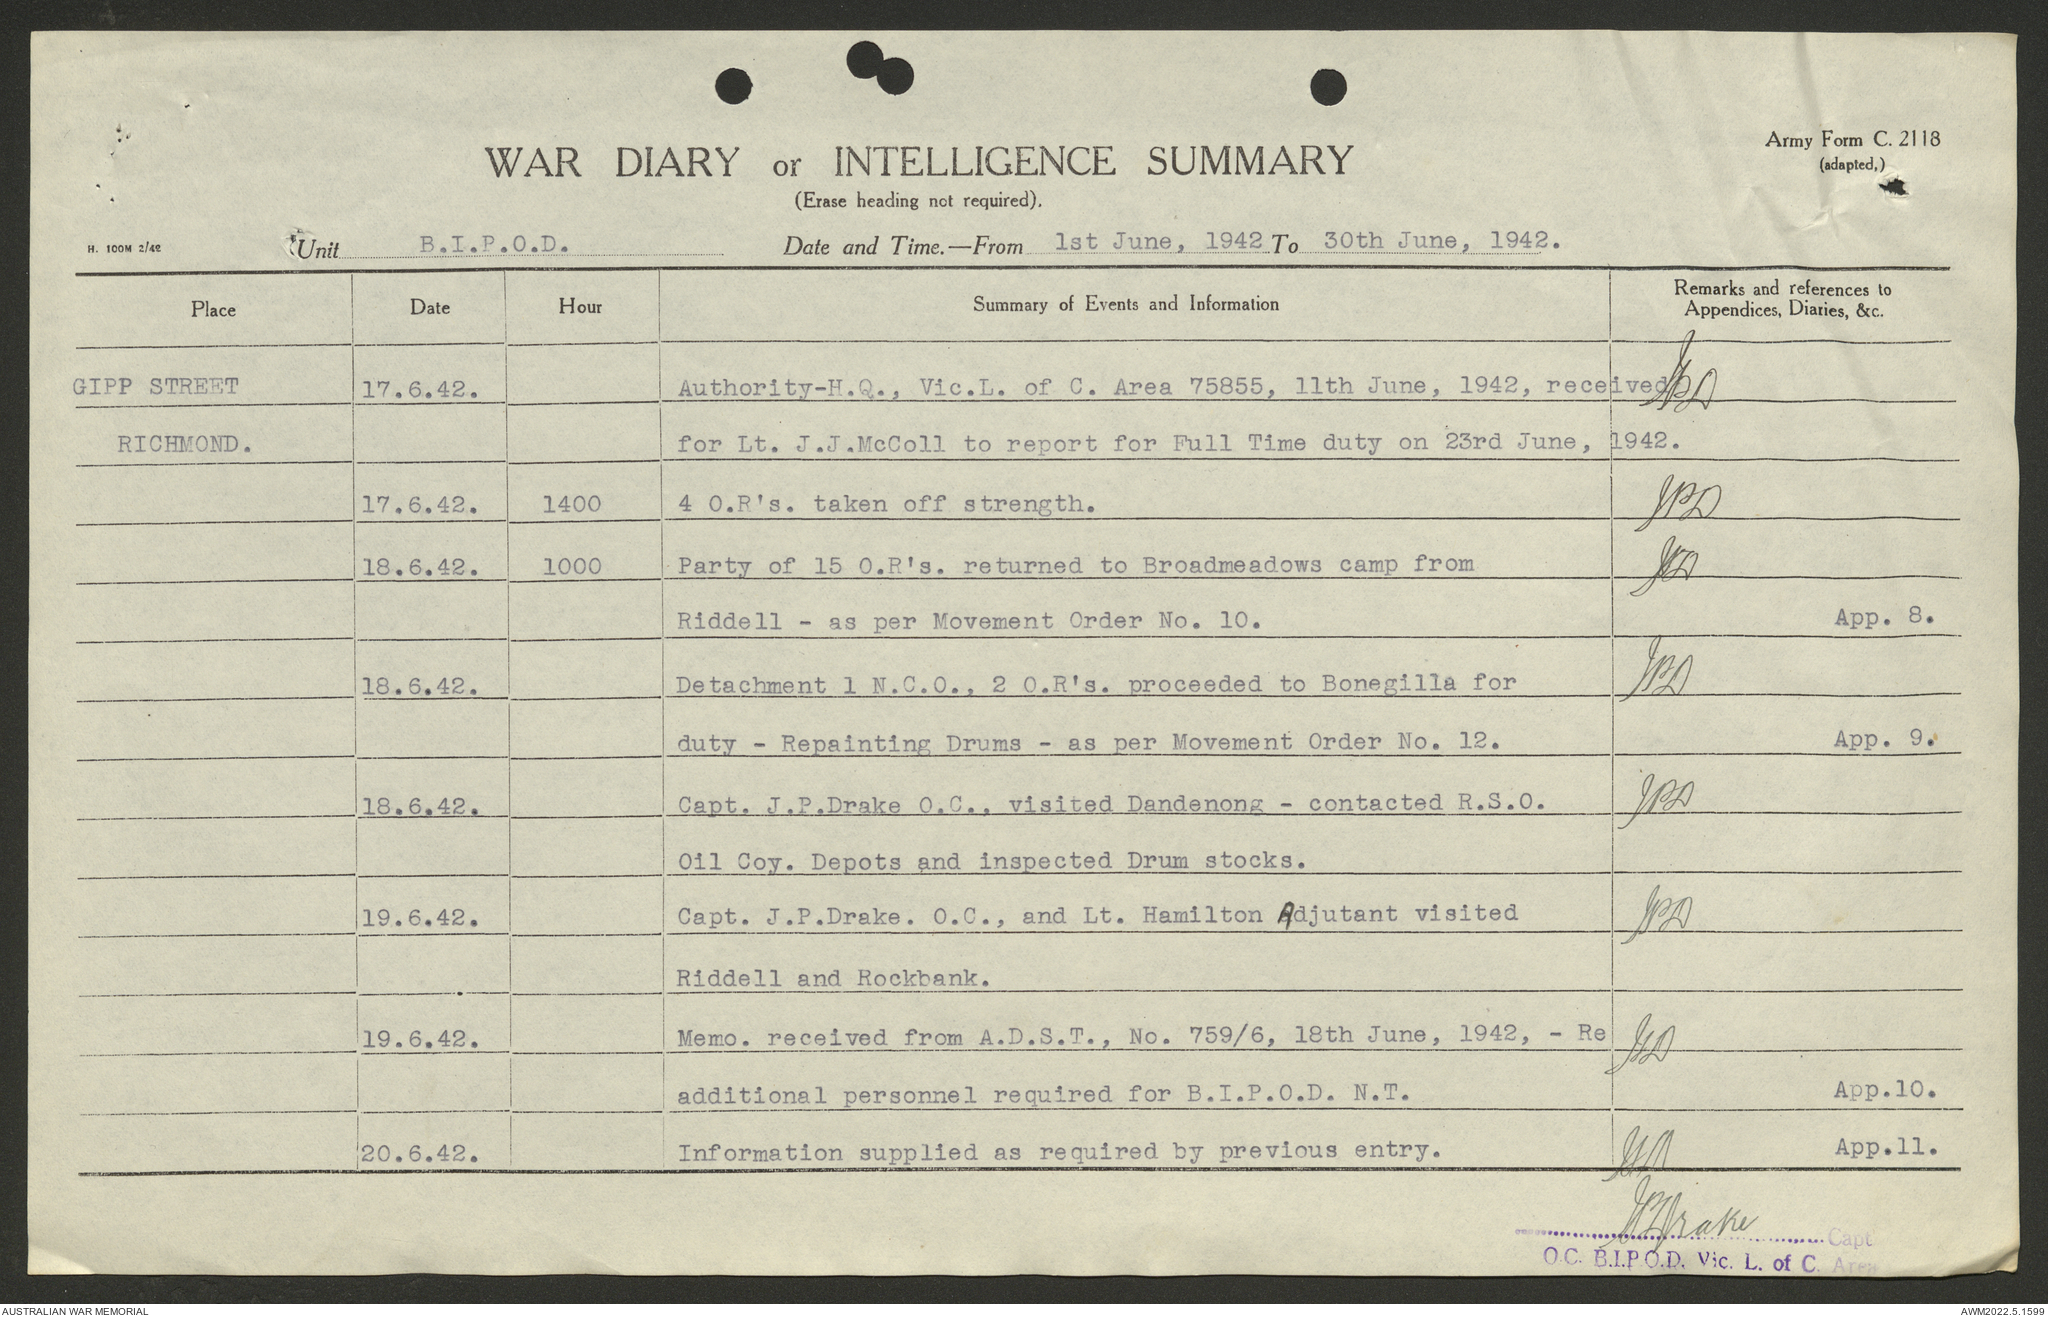 WAR DIARY or INTELLIGENCE SUMMARY
(Erase heading not required).
Army Form C. 2118
(adapted,)
H. 100M 2/42
Unit B.I.P.O.D. Date and Time.—From 1st June, 1942 To 30th June, 1942.
Place Date Hour Summary of Events and Information Remarks and references to Appendices, Diaries, &c.
GIPP STREET 17.6.42. Authority-H.Q., Vic.L. of C. Area 75855, 11th June, 1942, received JPD
RICHMOND. for Lt. J.J.McColl to report for Full Time duty on 23rd June, 1942.
17.6.42. 1400 4 O.R's. taken off strength. JPD
18.6.42. 1000 Party of 15 O.R's. returned to Broadmeadows camp from JPD
Riddell - as per Movement Order No. 10. App. 8.
18.6.42. Detachment 1 N.C.O., 2 O.R's. proceeded to Bonegilla for JPD
duty - Repainting Drums - as per Movement Order No. 12. App. 9.
18.6.42. Capt. J.P.Drake O.C., visited Dandenong - contacted R.S.O. JPD
Oil Coy. Depots and inspected Drum stocks.
19.6.42. Capt. J.P.Drake. O.C., and Lt. Hamilton Adjutant visited JPD
Riddell and Rockbank.
19.6.42. Memo. received from A.D.S.T., No. 759/6, 18th June, 1942, - Re JPD
additional personnel required for B.I.P.O.D. N.T. App.10.
20.6.42. Information supplied as required by previous entry. JPD App.11.
JPDrake Capt
O.C. B.I.P.O.D. Vic. L. of C. Area
AUSTRALIAN WAR MEMORIAL
AWM2022.5.1599